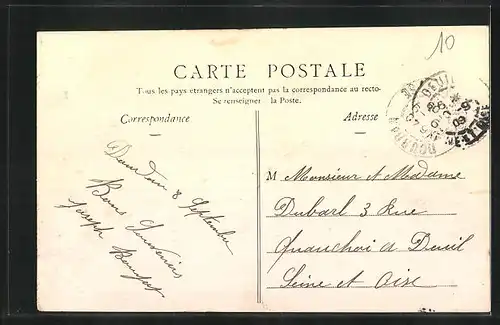 10
CARTE POSTALE
Tous les pays etrangers n'acceptent pas la correspondance au recto-
Se renseigner à la Poste.
Correspondance
Adresse
8 Septembre
Bons Souvenirs
Joseph
M Monsieur et Madame
Dubarl 3 Rue
à Deuil
Seine et Oise
DEUIL